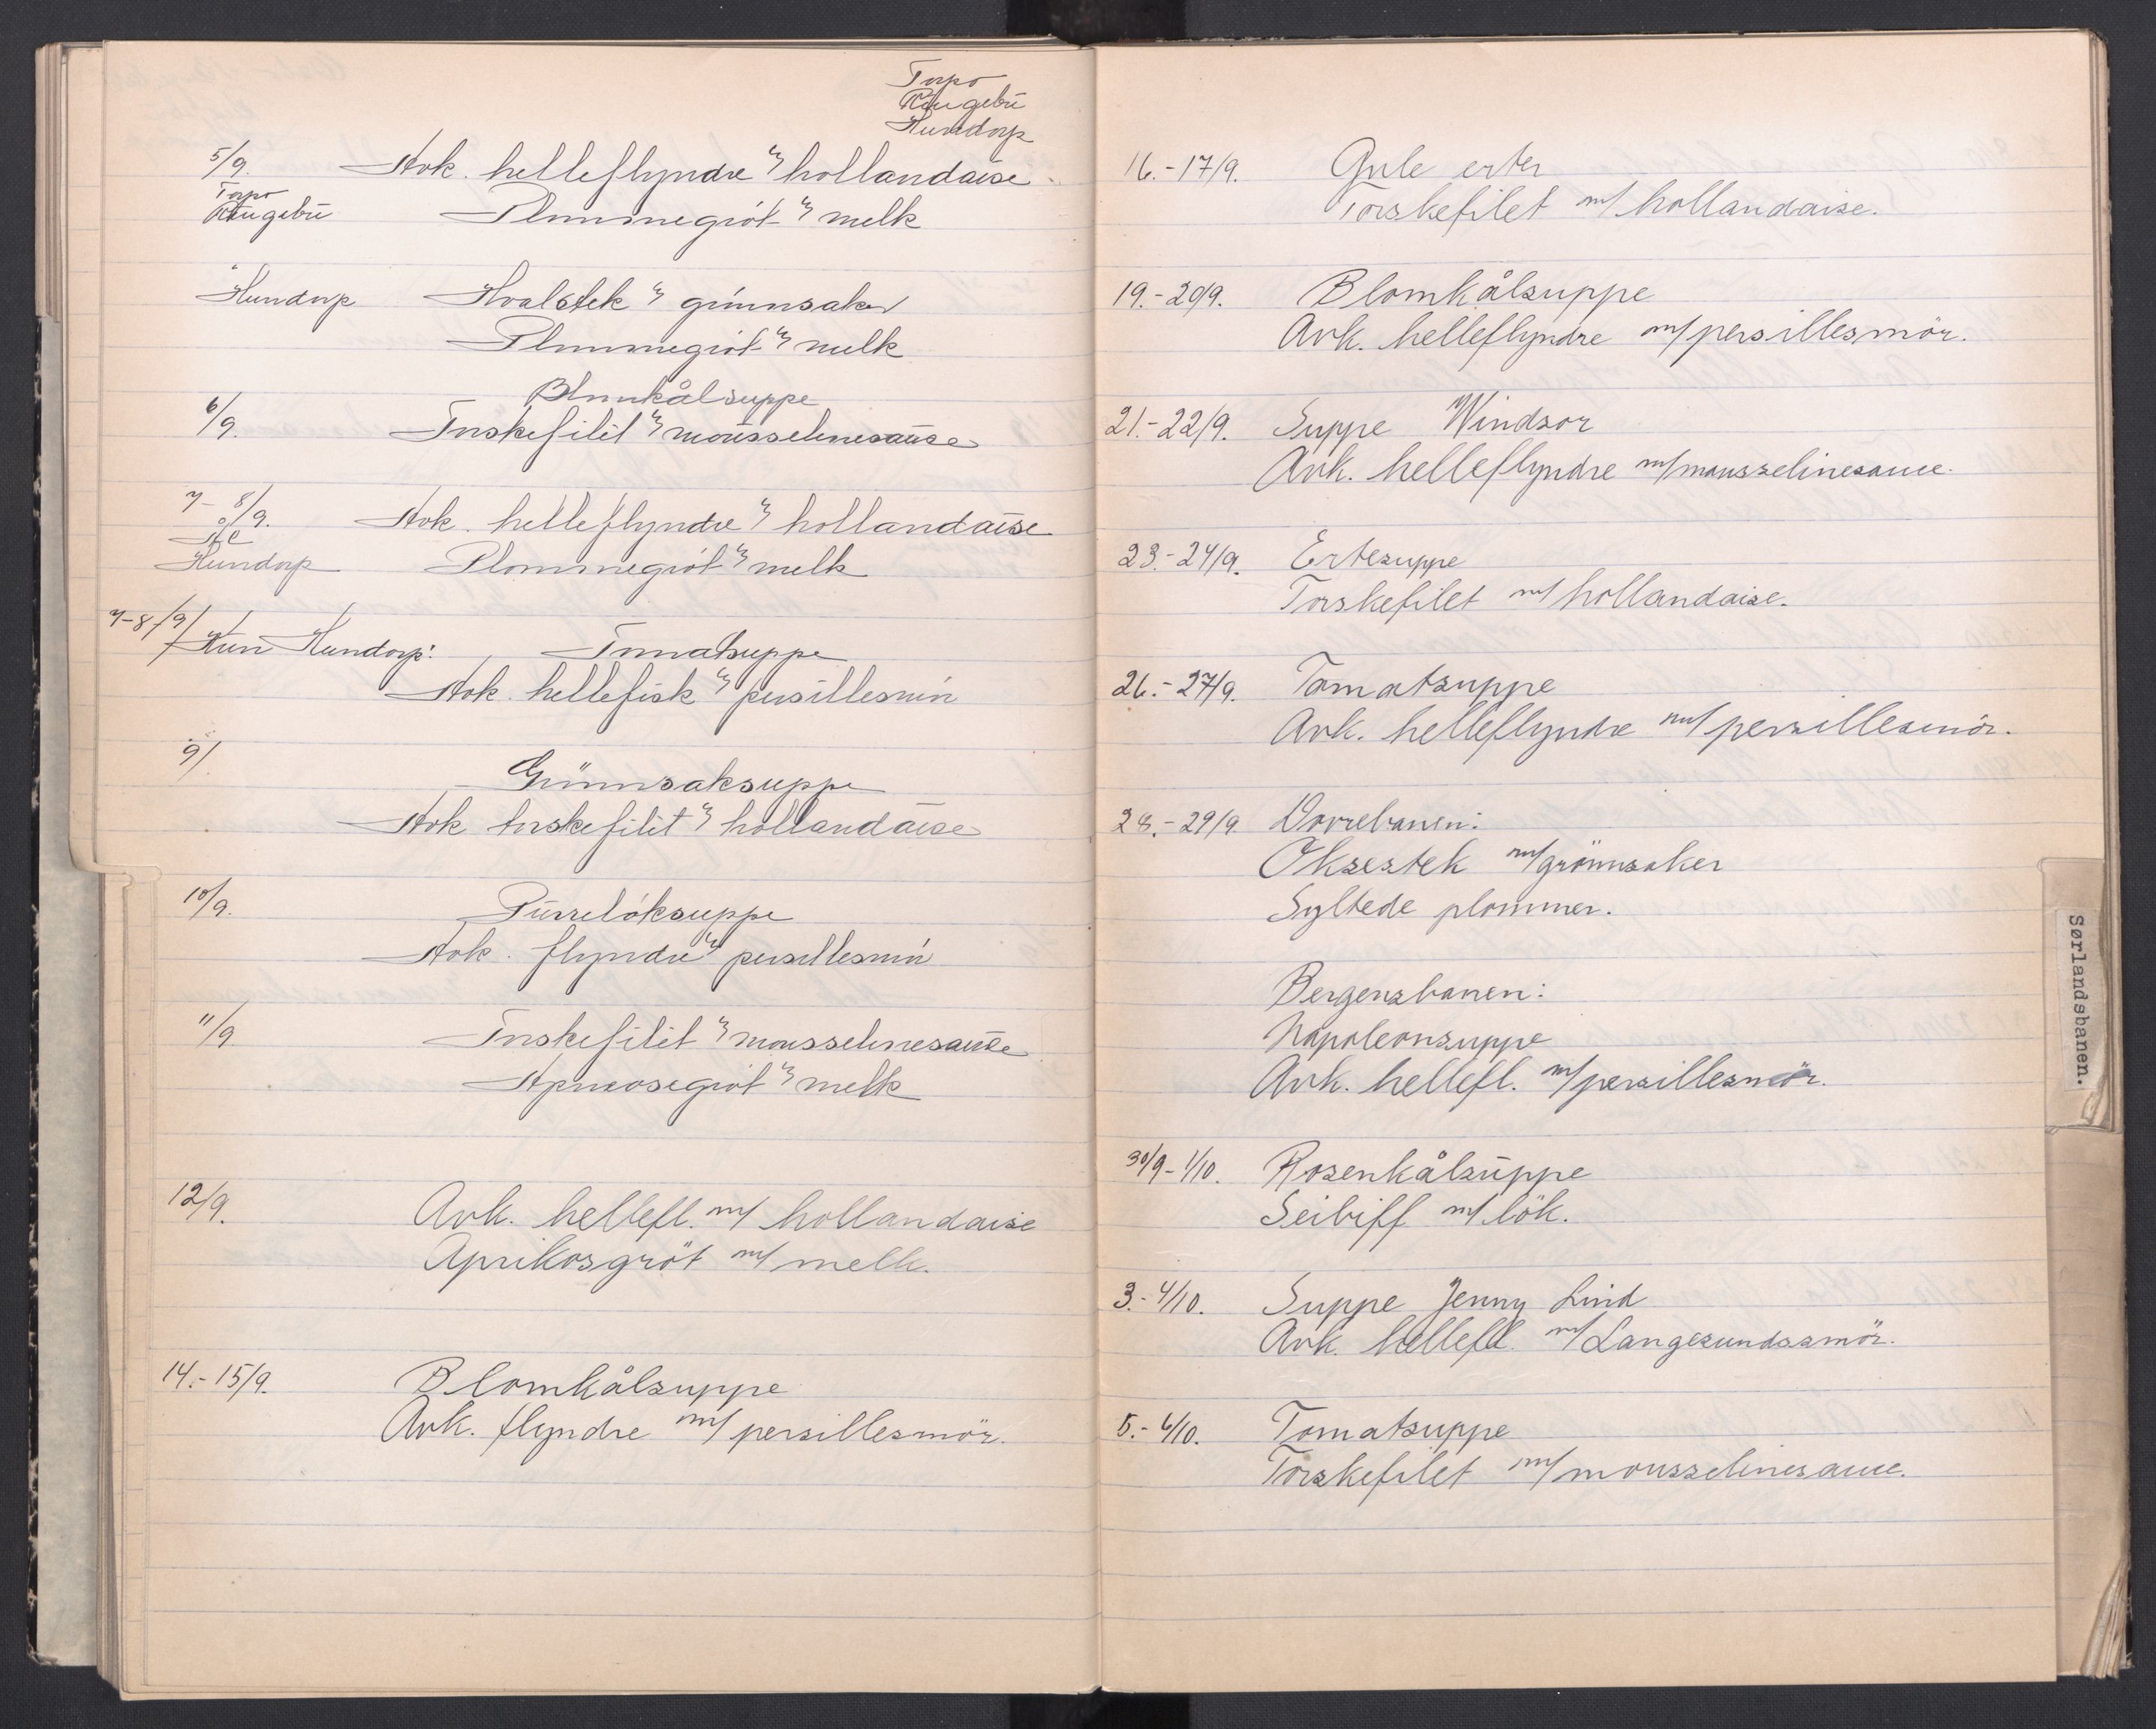 Torpo
Ringebu
Hundorp
5/9. Avk. helleflyndre m/ hollandaise
Torpo
Ringebu Plommegröt m/ melk
Hundorp Hvalstek m/ grönnsaker
Plommegröt m/ melk
Blomkålsuppe
6/9. Torskefilet m/ mousselinesause
7- 8/9. Avk. helleflyndre m/ hollandaise
Hundorp Plommegröt m/ melk
7-8/9 Kun Hundorp: Tomatsuppe
Avk. hellefisk m/ persillesmör
9/
Grönnsaksuppe
Avk torskefilet m/ hollandaise
10/9. Purrelöksuppe
Avk. flyndre m/ persillesmör
11/9 Torskefilet m/ mousselinesause
Aprikosegröt m/ melk
12/9. Avk. hellefl. m/ hollandaise
Aprikosgröt m/ melk.
14.-15/9. Blomkålsuppe
Avk. flyndre m/ persillesmör.
16.-17/9. Gule erter
Torskefilet m/ hollandaise.
19.-20/9. Blomkålsuppe
Avk. helleflyndre m/ persillesmör.
21.-22/9. Suppe Windsor
Avk. helleflyndre m/ mousselinesauce.
23.-24/9. Ertesuppe
Torskefilet m/ hollandaise.
26.-27/9. Tomatsuppe
Avk. helleflyndre m/ persillesmör.
28.-29/9 Dovrebanen:
Oksestek m/ grönnsaker
Syltede plommer.
Bergensbanen:
Napoleonsuppe
Avk. hellefl. m/ persillesmör.
30/9-1/10. Rosenkålsuppe
Seibiff m/ lök.
3.-4/10. Suppe Jenny Lind
Avk. hellefl. m/ Langesundssmör.
5.-6/10. Tomatsuppe
Torskefilet m/ mousselinesauce.
Sørlandsbanen.